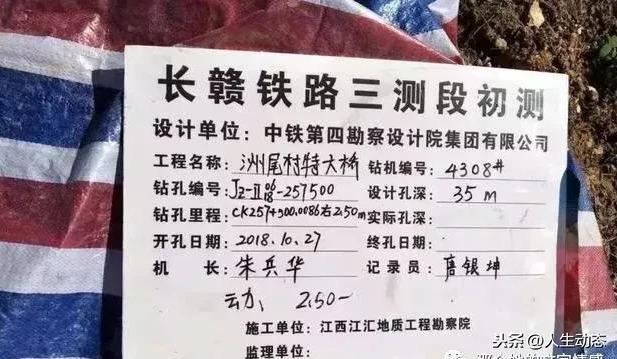 长赣铁路三测段初测
设计单位：中铁第四勘察设计院集团有限公司
工程名称：洲尾村特大桥 钻机编号：4308#
钻孔编号：Jz-Ⅱ-257500 设计孔深：35m
钻孔里程：CK257+500.0086右2.50m 实际孔深：
开孔日期：2018.10.27 终孔日期：
机 长：朱兵华 记录员：唐银坤
动, 2.50-
施工单位：江西江汇地质工程勘察院
监理单位：
头条@人生动态